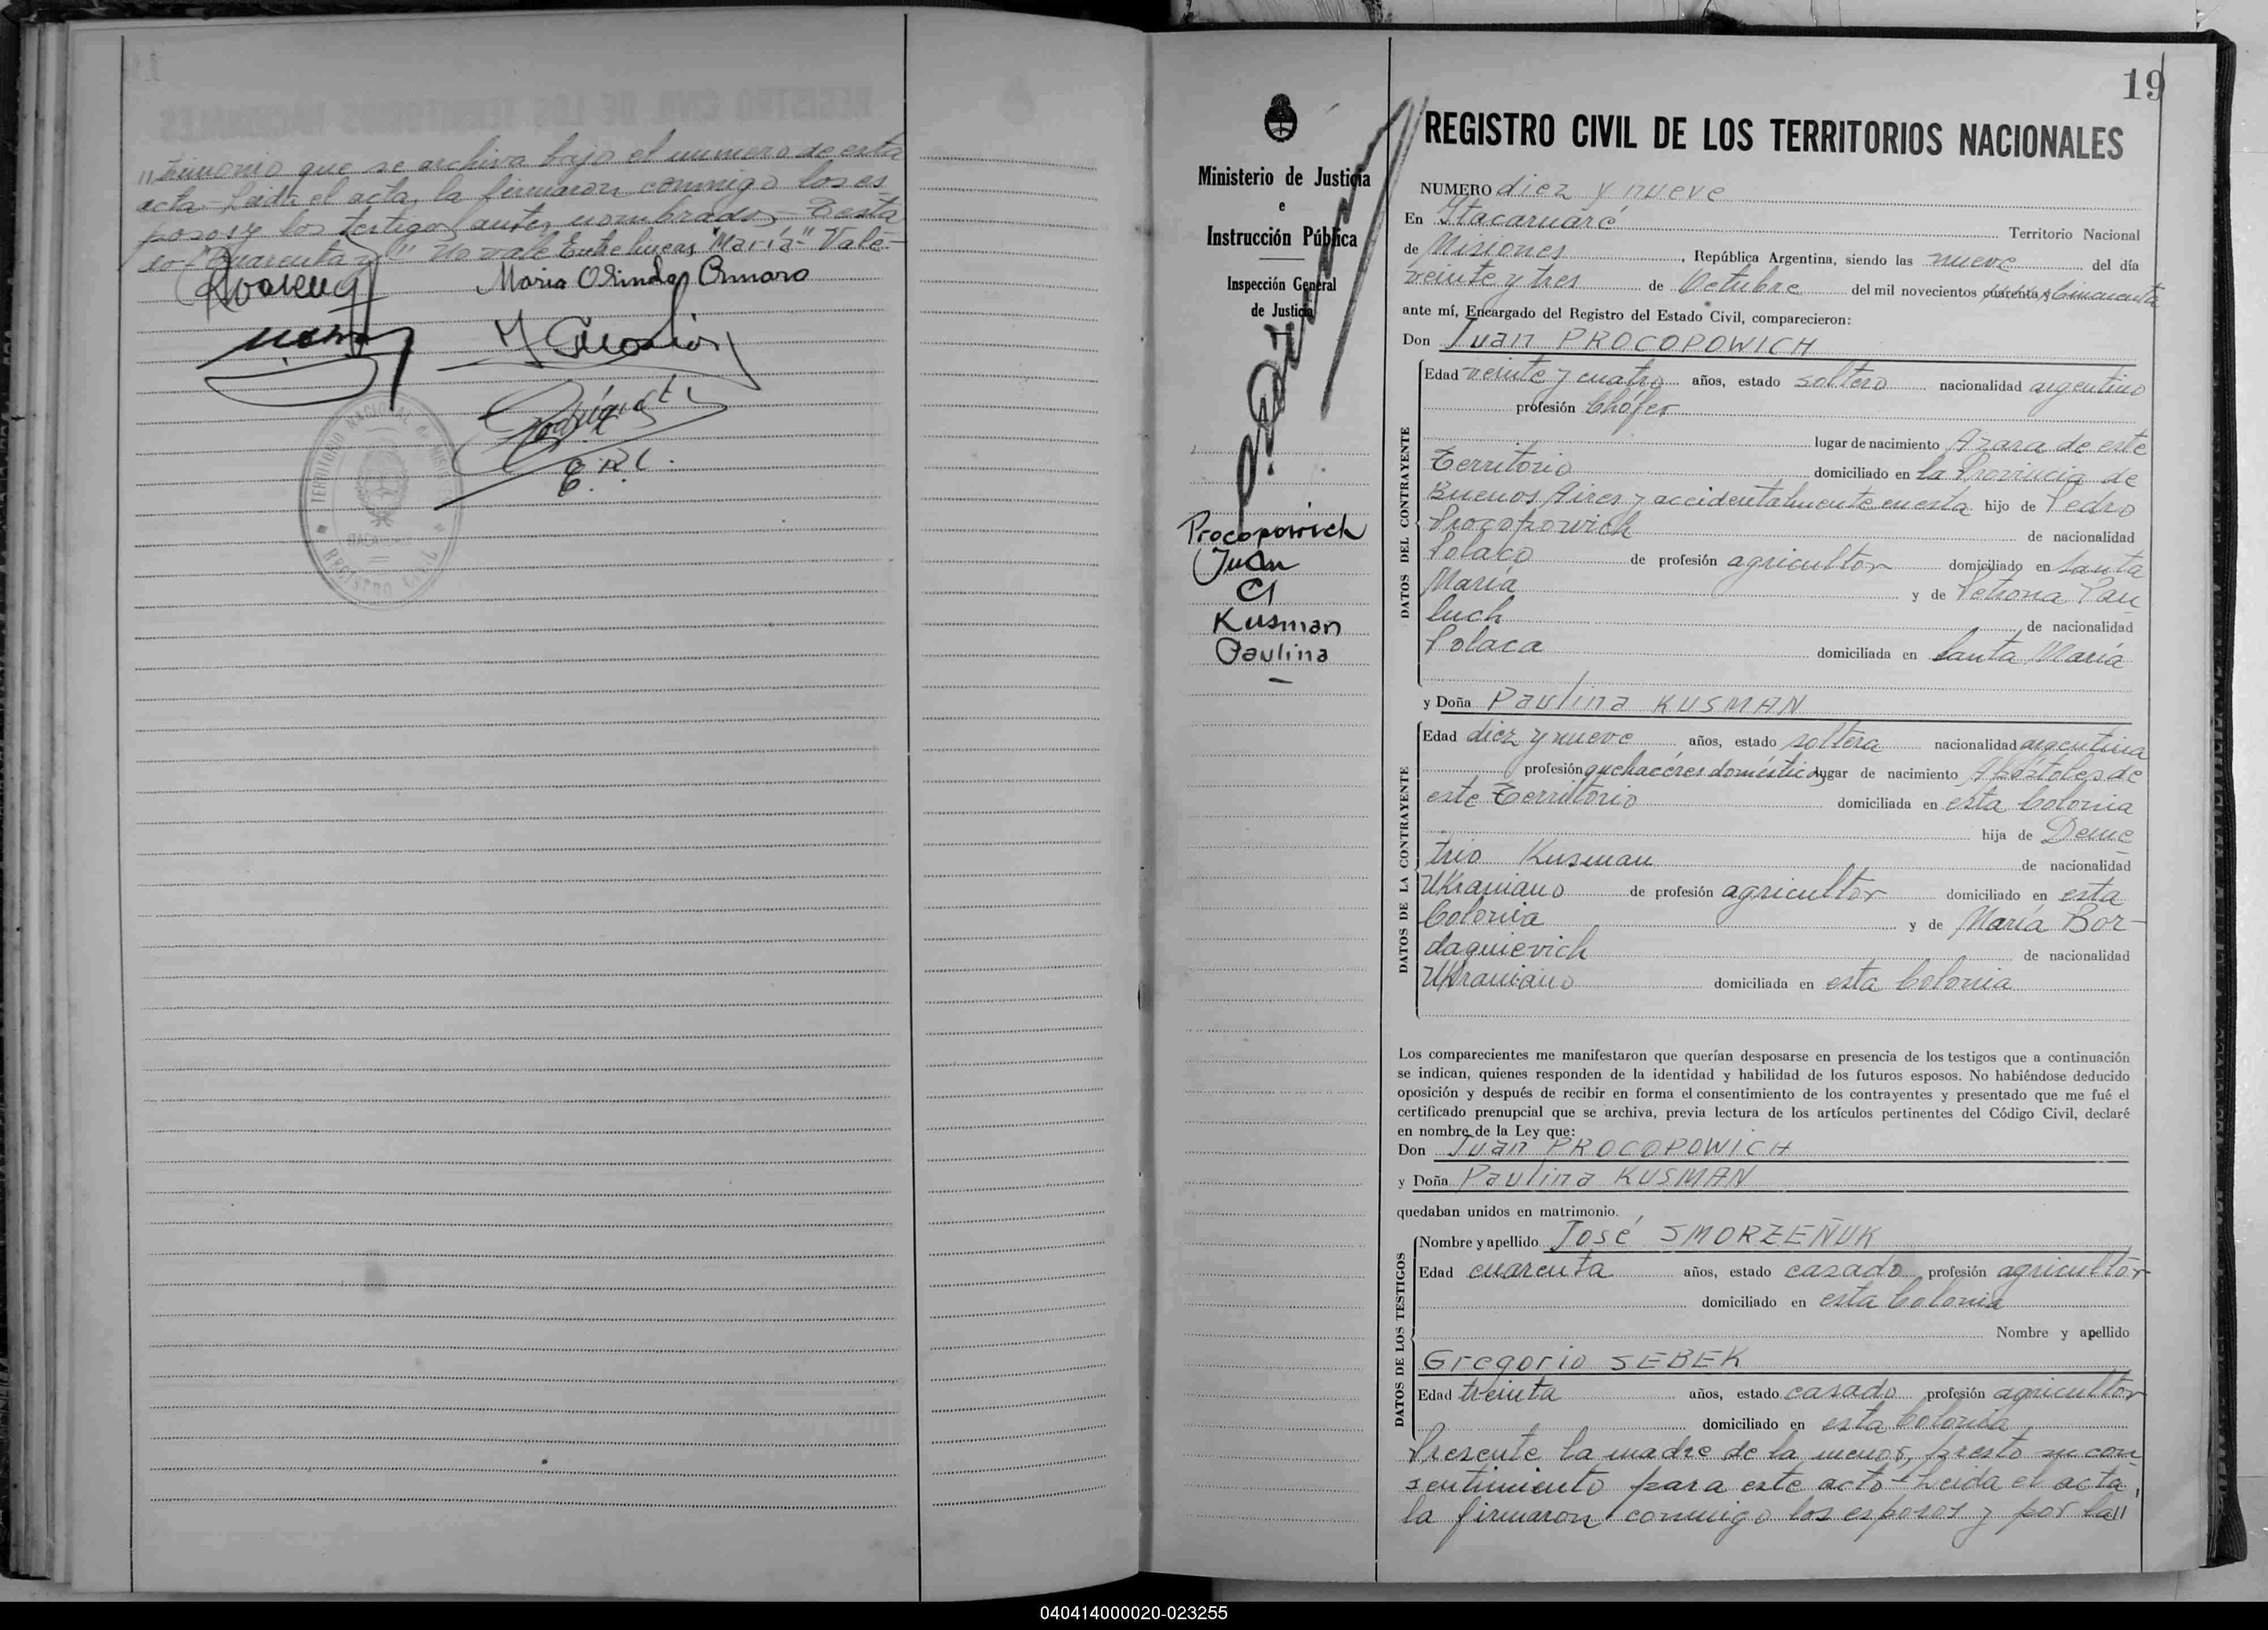 "timonio que se archiva bajo el numero de esta
acta - Leida el acta, la firmaron conmigo los es
posos y los testigos antes nombrados - Testa
do "Cuarenta y" No vale Entre lineas "María" Vale-
Maria Olinda
E.R.C.
TERRITORIO NACIONAL DE MISIONES
REGISTRO CIVIL
19
Ministerio de Justicia
e
Instrucción Pública
Inspección General
de Justicia
Procopowich
Juan
C/
Kusman
Paulina
REGISTRO CIVIL DE LOS TERRITORIOS NACIONALES
NUMERO diez y nueve
En Itacaruaré Territorio Nacional
de Misiones, República Argentina, siendo las nueve del día
veinte y tres de Octubre del mil novecientos cuarenta y Cincuenta
ante mí, Encargado del Registro del Estado Civil, comparecieron:
Don Juan PROCOPOWICH
DATOS DEL CONTRAYENTE
Edad veinte y cuatro años, estado soltero nacionalidad argentino
profesión Chófer
lugar de nacimiento Azara de este
Territorio domiciliado en la Provincia de
Buenos Aires y accidentalmente en esta hijo de Pedro
Procopowich de nacionalidad
Polaco de profesión agricultor domiciliado en Santa
María y de Petrona Pau
luch de nacionalidad
Polaca domiciliada en Santa María
y Doña Paulina KUSMAN
DATOS DE LA CONTRAYENTE
Edad diez y nueve años, estado soltera nacionalidad argentina
profesión quehaceres domésticos lugar de nacimiento Apóstoles de
este Territorio domiciliada en esta Colonia
hija de Deme
trio Kusman de nacionalidad
Ukraniano de profesión agricultor domiciliado en esta
Colonia y de María Bor-
daquievich de nacionalidad
Ukraniano domiciliada en esta Colonia
Los comparecientes me manifestaron que querían desposarse en presencia de los testigos que a continuación
se indican, quienes responden de la identidad y habilidad de los futuros esposos. No habiéndose deducido
oposición y después de recibir en forma el consentimiento de los contrayentes y presentado que me fué el
certificado prenupcial que se archiva, previa lectura de los artículos pertinentes del Código Civil, declaré
en nombre de la Ley que:
Don Juan PROCOPOWICH
y Doña Paulina KUSMAN
quedaban unidos en matrimonio.
DATOS DE LOS TESTIGOS
Nombre y apellido José SMORZEÑUK
Edad cuarenta años, estado casado profesión agricultor
domiciliado en esta Colonia
Nombre y apellido
Gregorio SEBEK
Edad treinta años, estado casado profesión agricultor
domiciliado en esta Colonia
Presente la madre de la menor, presto su con
sentimiento para este acto - Leida el acta,
la firmaron conmigo los esposos y por la"
040414000020-023255